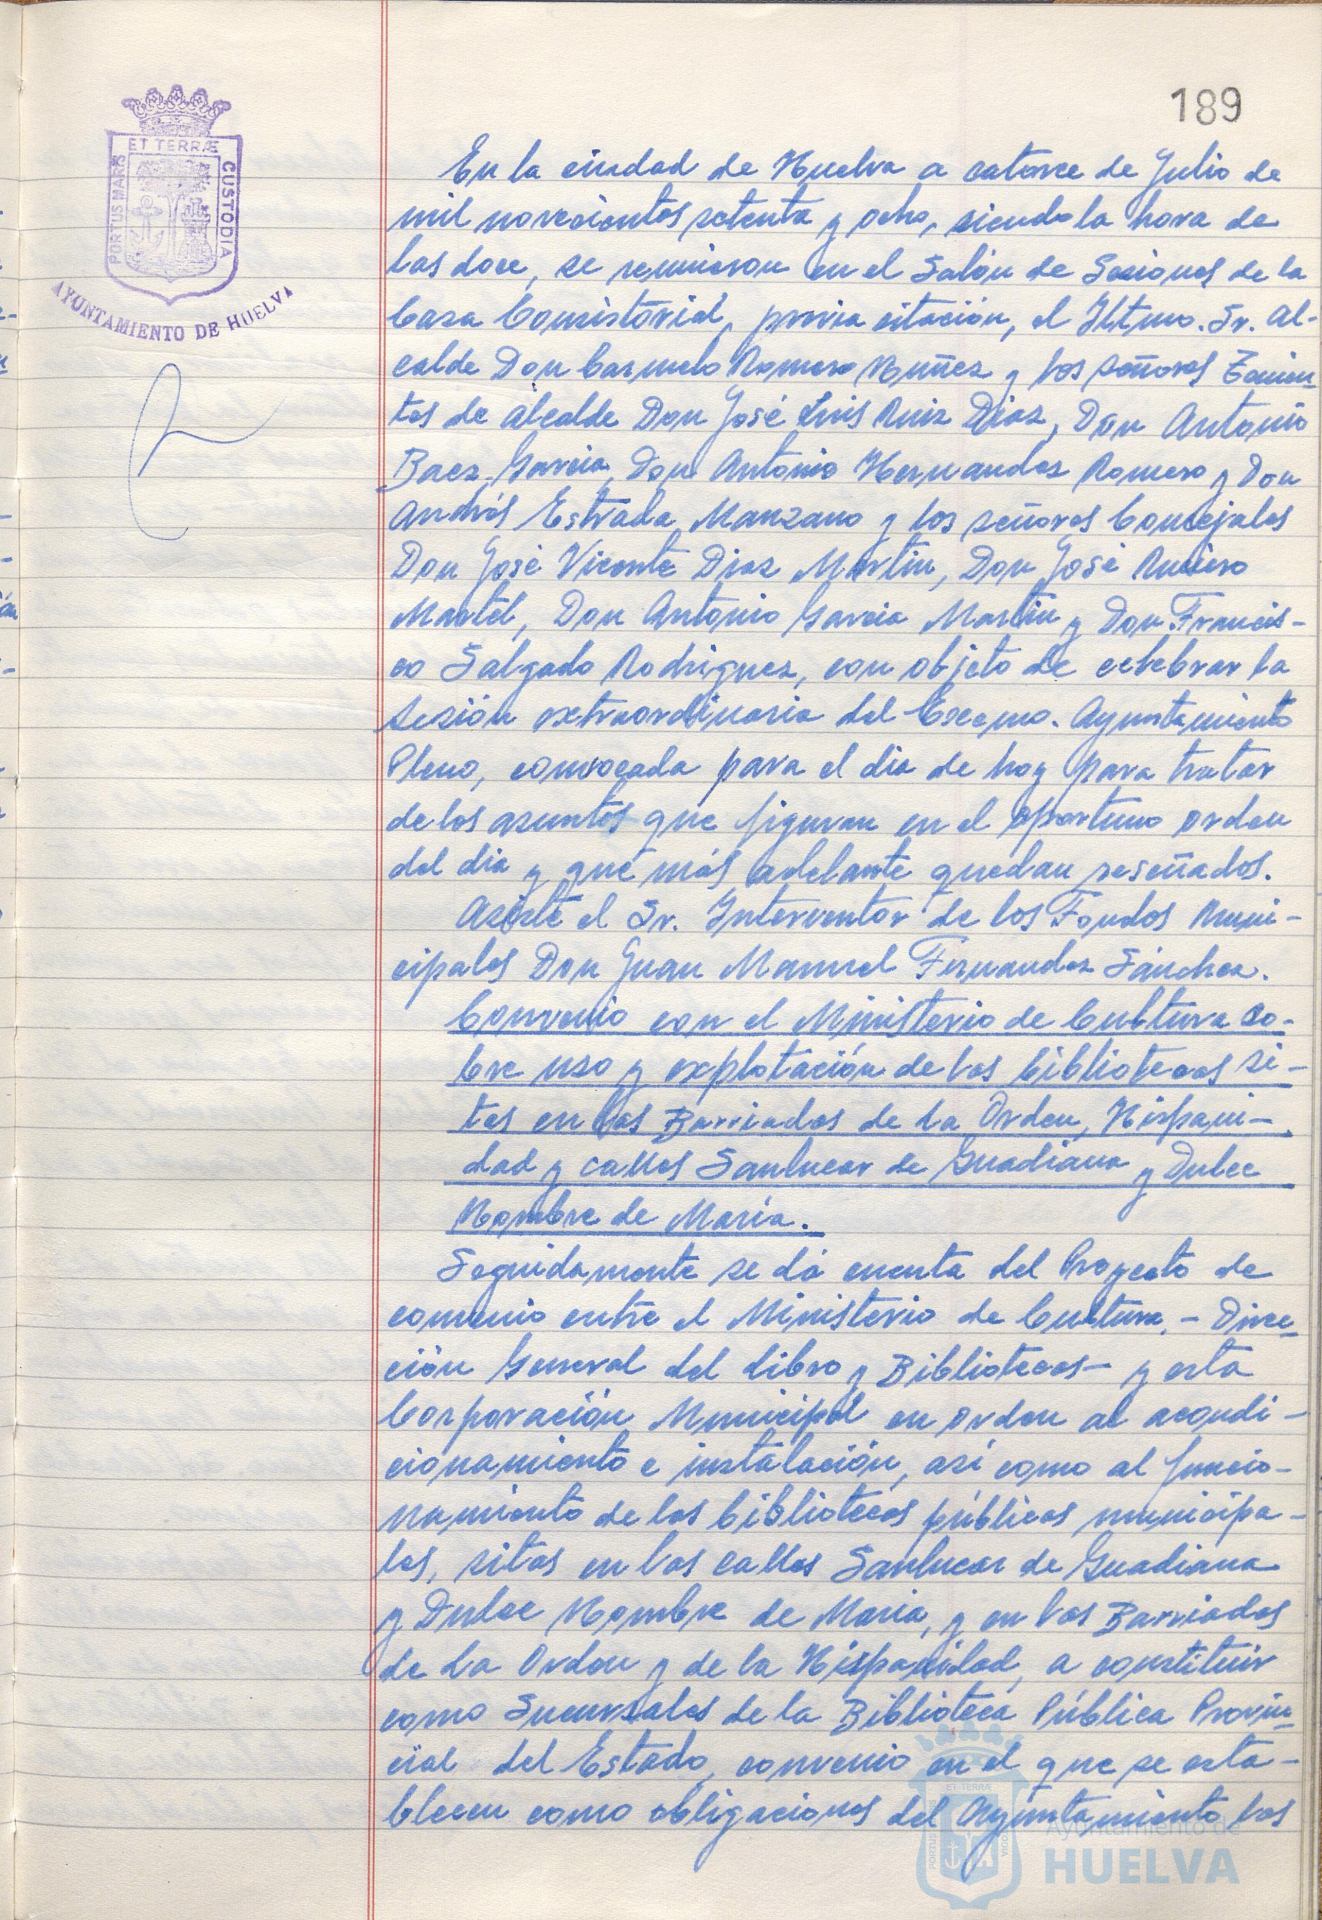 189
ET TERRÆ
PORTUS MARIS
CUSTODIA
AYUNTAMIENTO DE HUELVA
En la ciudad de Huelva a catorce de Julio de
mil novecientos setenta y ocho, siendo la hora de
las doce, se reunieron en el Salón de Sesiones de la
Casa Consistorial, previa citación, el Iltmo. Sr. Al-
calde Don Carmelo Romero Núñez y los señores Tenien-
tes de alcalde Don José Luis Ruiz Diaz, Don Antonio
Baez Garcia, Don Antonio Hernandez Romero y Don
Andrés Estrada Manzano y los señores Concejales
Don José Vicente Diaz Martin, Don José
Martel, Don Antonio Garcia Martin y Don Francis-
co Salgado Rodriguez, con objeto de celebrar la
sesión extraordinaria del Excmo. Ayuntamiento
Pleno, convocada para el dia de hoy para tratar
de los asuntos que figuran en el oportuno orden
del dia y que más adelante quedan reseñados.
Asiste el Sr. Interventor de los Fondos Muni-
cipales Don Juan Manuel Fernandez Sánchez.
Convenio con el Ministerio de Cultura so-
bre uso y explotación de las bibliotecas si-
tas en las Barriadas de La Orden, Hispani-
dad y calles Sanlucar de Guadiana y Dulce
Nombre de María.
Seguidamente se dá cuenta del Proyecto de
convenio entre el Ministerio de Cultura, - Direc-
ción General del Libro y Bibliotecas - y esta
Corporación Municipal en orden al acondi-
cionamiento e instalación, así como al funcio-
namiento de las bibliotecas públicas municipa-
les, sitas en las calles Sanlucar de Guadiana
y Dulce Nombre de Maria, y en las Barriadas
de La Orden y de la Hispanidad, a constituir
como Sucursales de la Biblioteca Pública Provin-
cial del Estado, convenio en el que se esta-
blecen como obligaciones del Ayuntamiento las
Ayuntamiento de
HUELVA